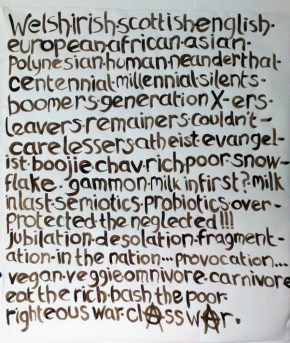 Welsh·irish·scottish·english·
european·african·asian·
Polynesian·human·neanderthal·
centennial·millennial·silents·
boomers·generation X-ers·
leavers·remainers·couldn't-
care lessers·atheist·evangel-
ist·boojie·chav·rich·poor·snow-
flake·gammon·milk in first?·milk
in last·semiotics·probiotics·over-
protected·the neglected!!!
jubilation·desolation·fragment-
ation·in the nation...provocation...
vegan·veggie·omnivore·carnivore
eat the rich·bash the poor·
righteous war·class war·